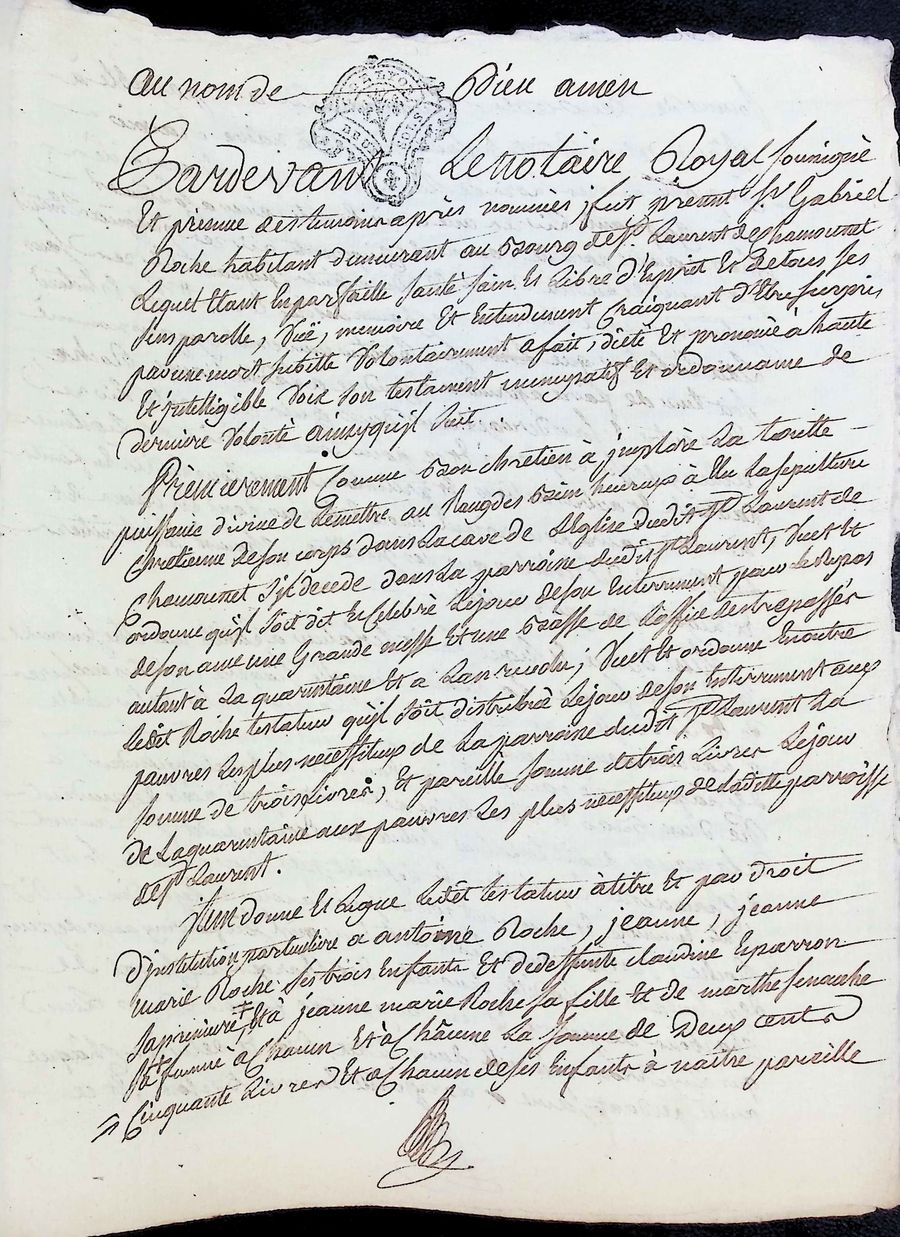 au nom de Dieu amen
Pardevant Le notaire Royal soussigné
Et présence des temoins après nommés, fut présent Sr Gabriel
Roche habitant demeurant au Bourg de St Laurent de chamousset
Lequel Etant En parfaitte santé sain Et Libre d'Esprit Et De tous ses
sens parolle, vüe, memoire Et Entendement Craignant d'Etre surpris
par une mort subitte Volontairement a fait, dicté Et prononcé à haute
Et jntelligible Voix son testament nuncupatif Et ordonnance de
derniere Volonté ainsy qu'jl suit
Prémierement Comme Bon chretien à jmploré La toutte
puissance divine de Le mettre au Rang des Bien heureux à Elu La sepulture
Chretienne de son corps dans La cave de L'Eglise dudit St Laurent de
Chamousset s'jl decede dans La parroisse dudit St Laurent, Veut Et
ordonne qu'jl soit dit Et Celebré Le jour de son Enterrement pour Le Repos
de son ame une Grande messe Et une Basse de L'office des trepassés
autant à La quarantaine Et a L'an revolu; Veut Et ordonne En outre
Ledit Roche testateur qu'jl soit distribué Le jour de son Enterrement aux
pauvres Les plus necessiteux de La parroisse dudit St Laurent La
somme de trois Livres, Et pareille somme de trois Livres Le jour
de La quarantaine aux pauvres Les plus necessiteux de Laditte parroisse
de St Laurent.
jtem donne Et Legue Ledit testateur à titre Et par droit
D'jnstitution particuliere a antoine Roche, jeanne, jeanne
marie Roche ses trois Enfants Et de deffunte claudine Esparron
sa premiere Et à jeanne marie Roche sa fille Et de marthe
femme à Chacun Et à Châcune La somme de Deux cents
Cinquante Livres Et a Chacun de ses Enfants à naitre pareille